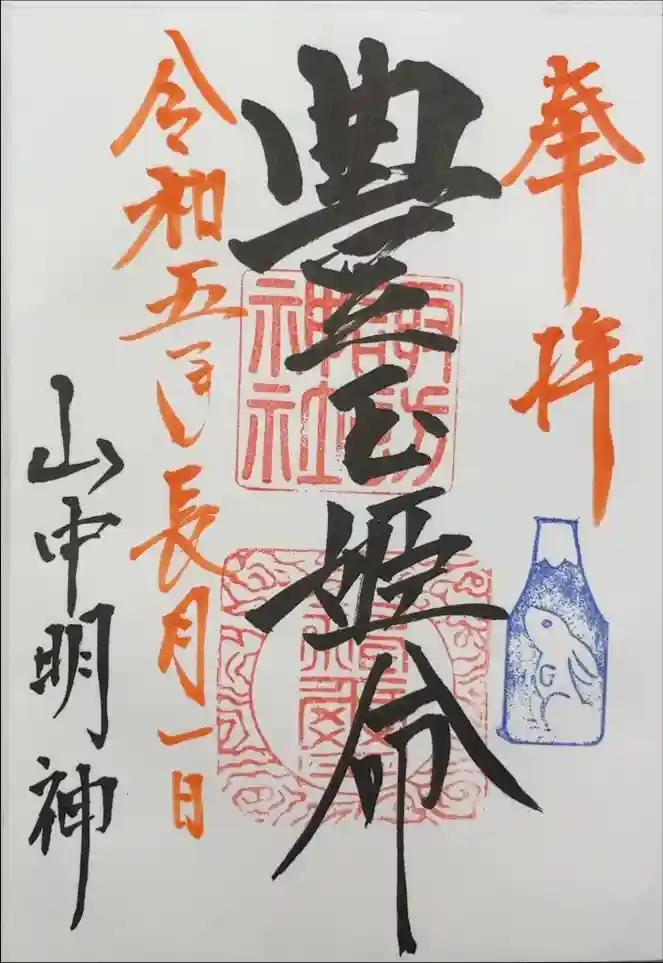 奉拝
豊玉姫命
令和五年長月一日
山中明神
諏訪神社